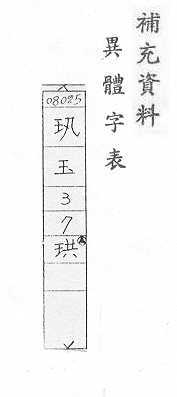 補充資料
異體字表
08025
玉
3
7
珙